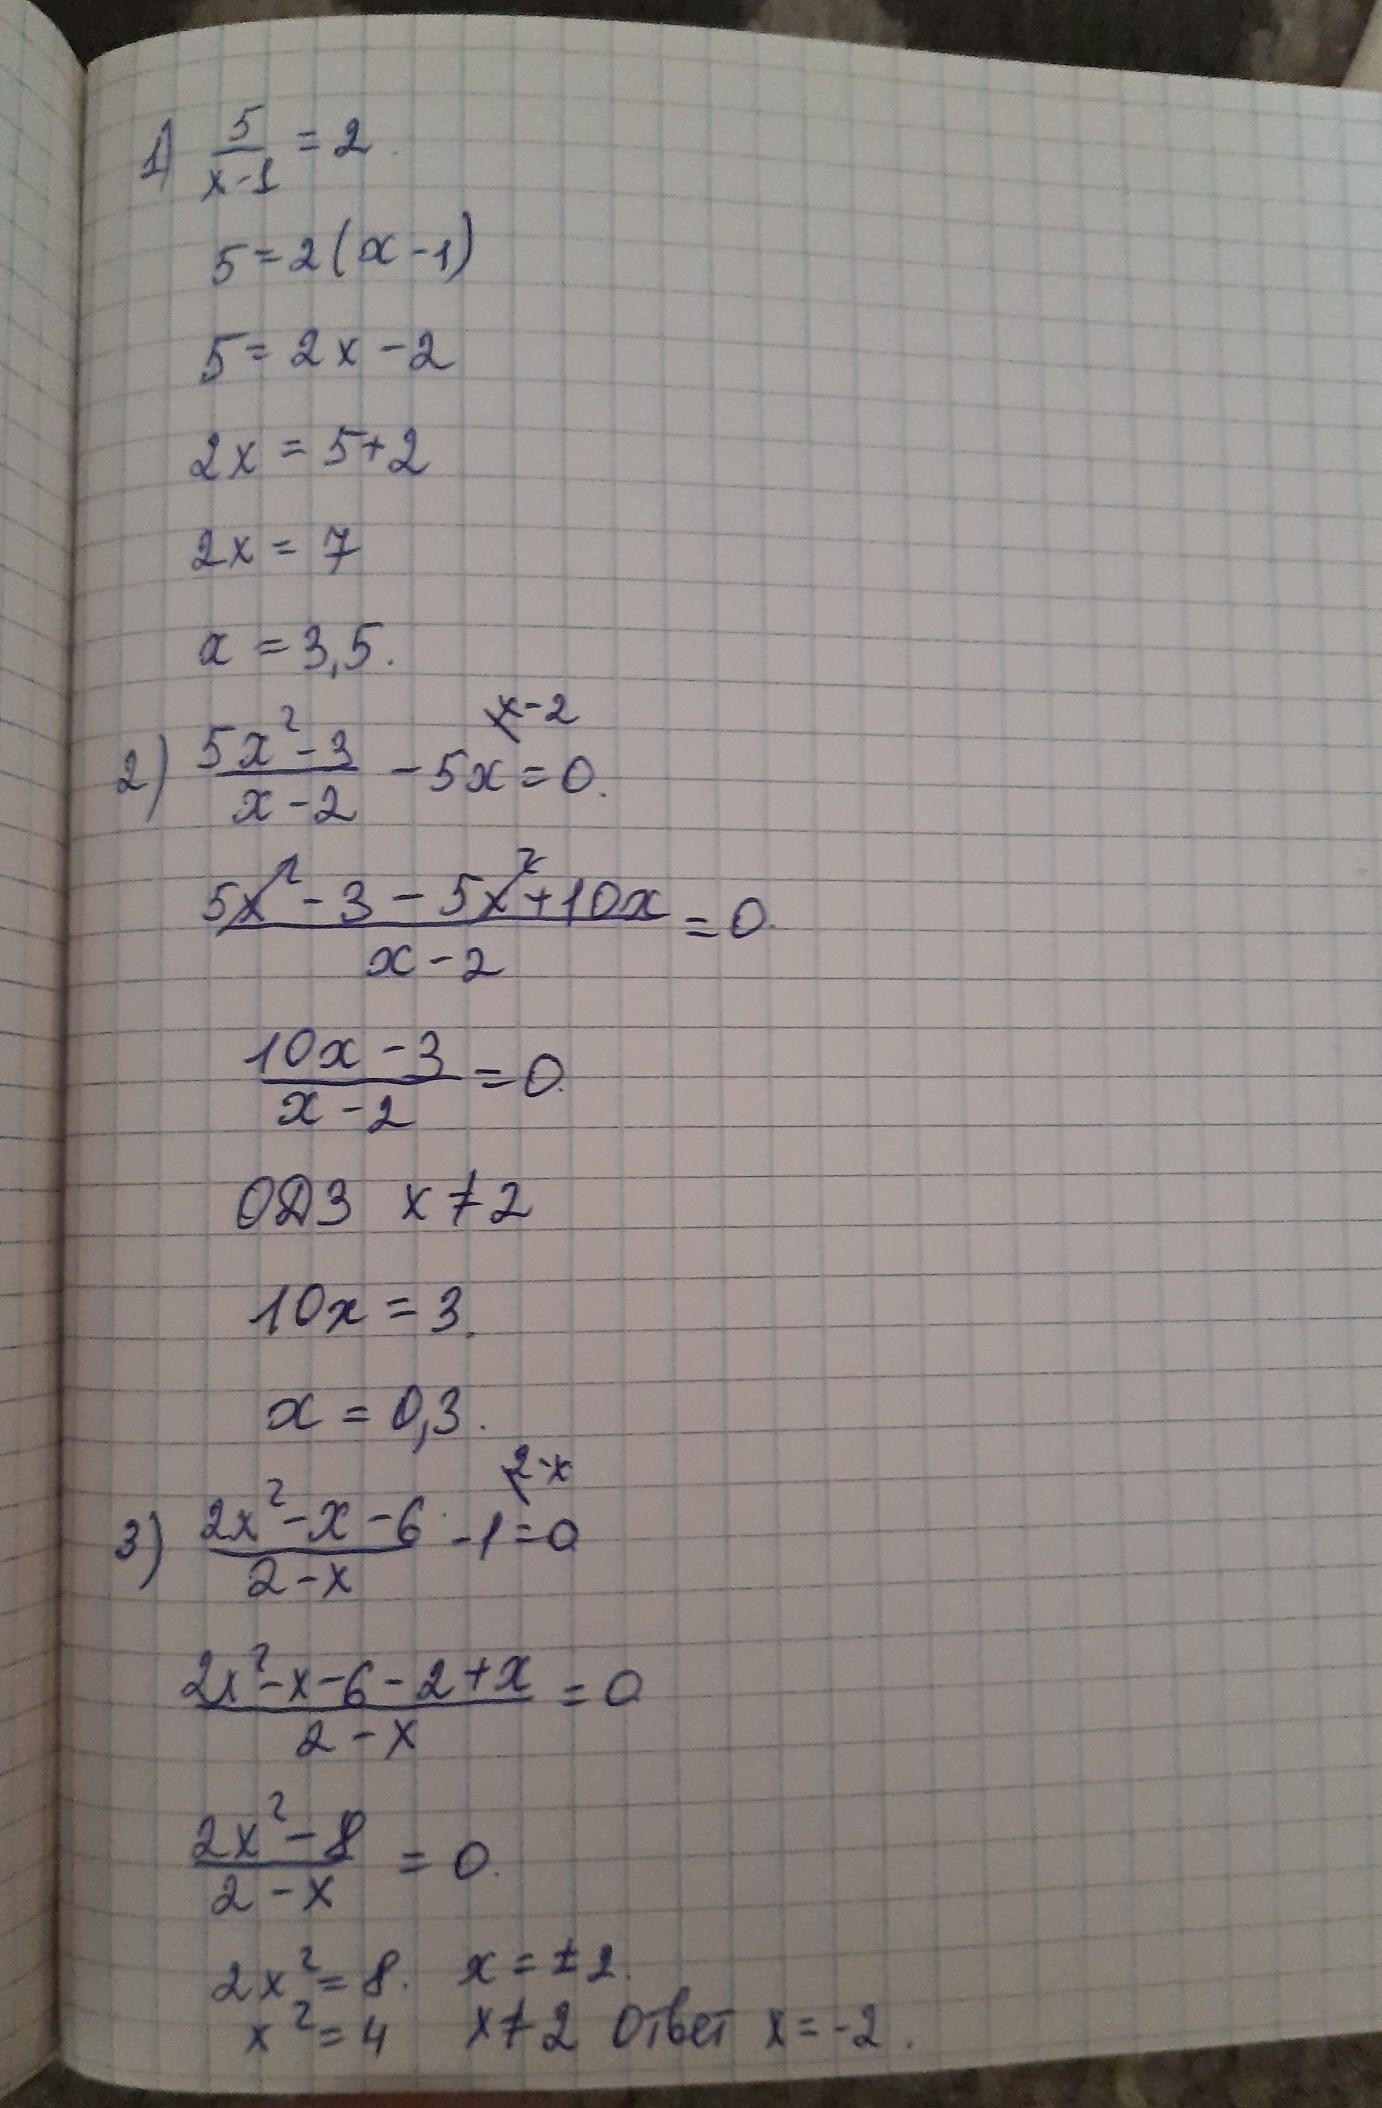 1) 5/(x-1) = 2.
5 = 2(x-1)
5 = 2x - 2
2x = 5+2
2x = 7
x = 3,5.
x-2
2) (5x² - 3)/(x - 2) - 5x = 0.
(5x² - 3 - 5x² + 10x)/(x - 2) = 0.
(10x - 3)/(x - 2) = 0.
ОДЗ x ≠ 2
10x = 3.
x = 0,3.
2-x
3) (2x² - x - 6)/(2 - x) - 1 = 0
(2x² - x - 6 - 2 + x)/(2 - x) = 0
(2x² - 8)/(2 - x) = 0.
2x² = 8. x = ±2.
x² = 4 x ≠ 2 Ответ x = -2.